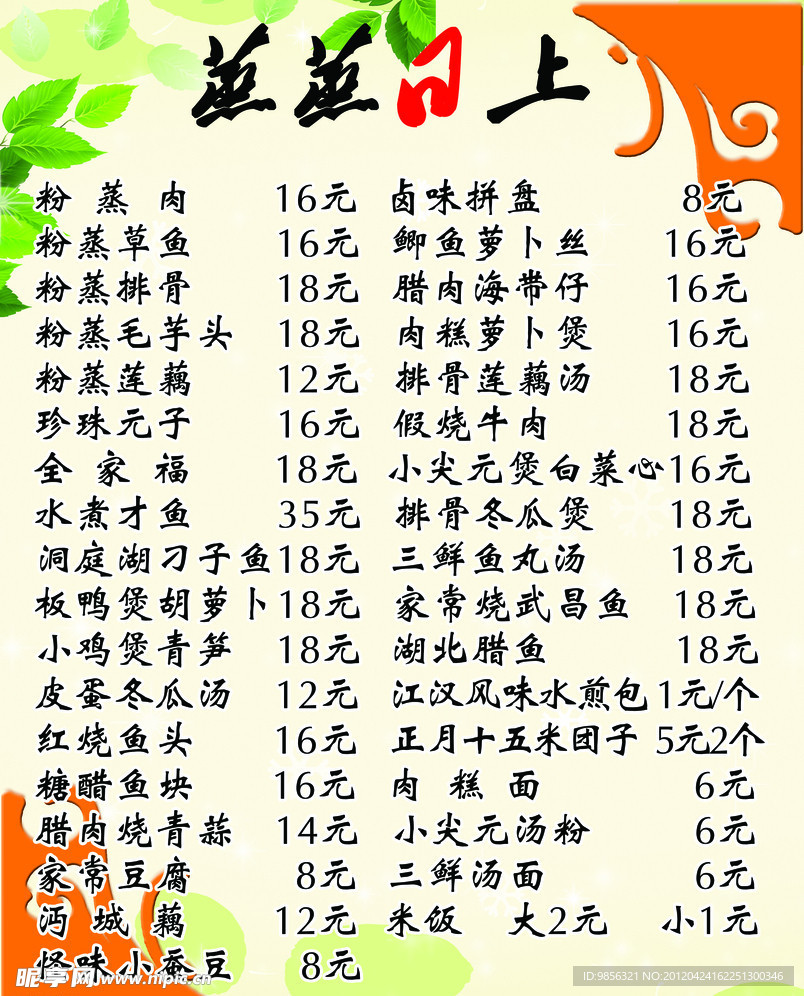 蒸蒸日上
粉蒸肉 16元 卤味拼盘 8元
粉蒸草鱼 16元 鲫鱼萝卜丝 16元
粉蒸排骨 18元 腊肉海带仔 16元
粉蒸毛芋头 18元 肉糕萝卜煲 16元
粉蒸莲藕 12元 排骨莲藕汤 18元
珍珠元子 16元 假烧牛肉 18元
全家福 18元 小尖元煲白菜心 16元
水煮才鱼 35元 排骨冬瓜煲 18元
洞庭湖刁子鱼 18元 三鲜鱼丸汤 18元
板鸭煲胡萝卜 18元 家常烧武昌鱼 18元
小鸡煲青笋 18元 湖北腊鱼 18元
皮蛋冬瓜汤 12元 江汉风味水煎包 1元/个
红烧鱼头 16元 正月十五米团子 5元2个
糖醋鱼块 16元 肉糕面 6元
腊肉烧青蒜 14元 小尖元汤粉 6元
家常豆腐 8元 三鲜汤面 6元
沔城藕 12元 米饭 大2元 小1元
怪味小蚕豆 8元
昵享网 www.nipic.cn
ID:9856321 NO:20120424162251300346